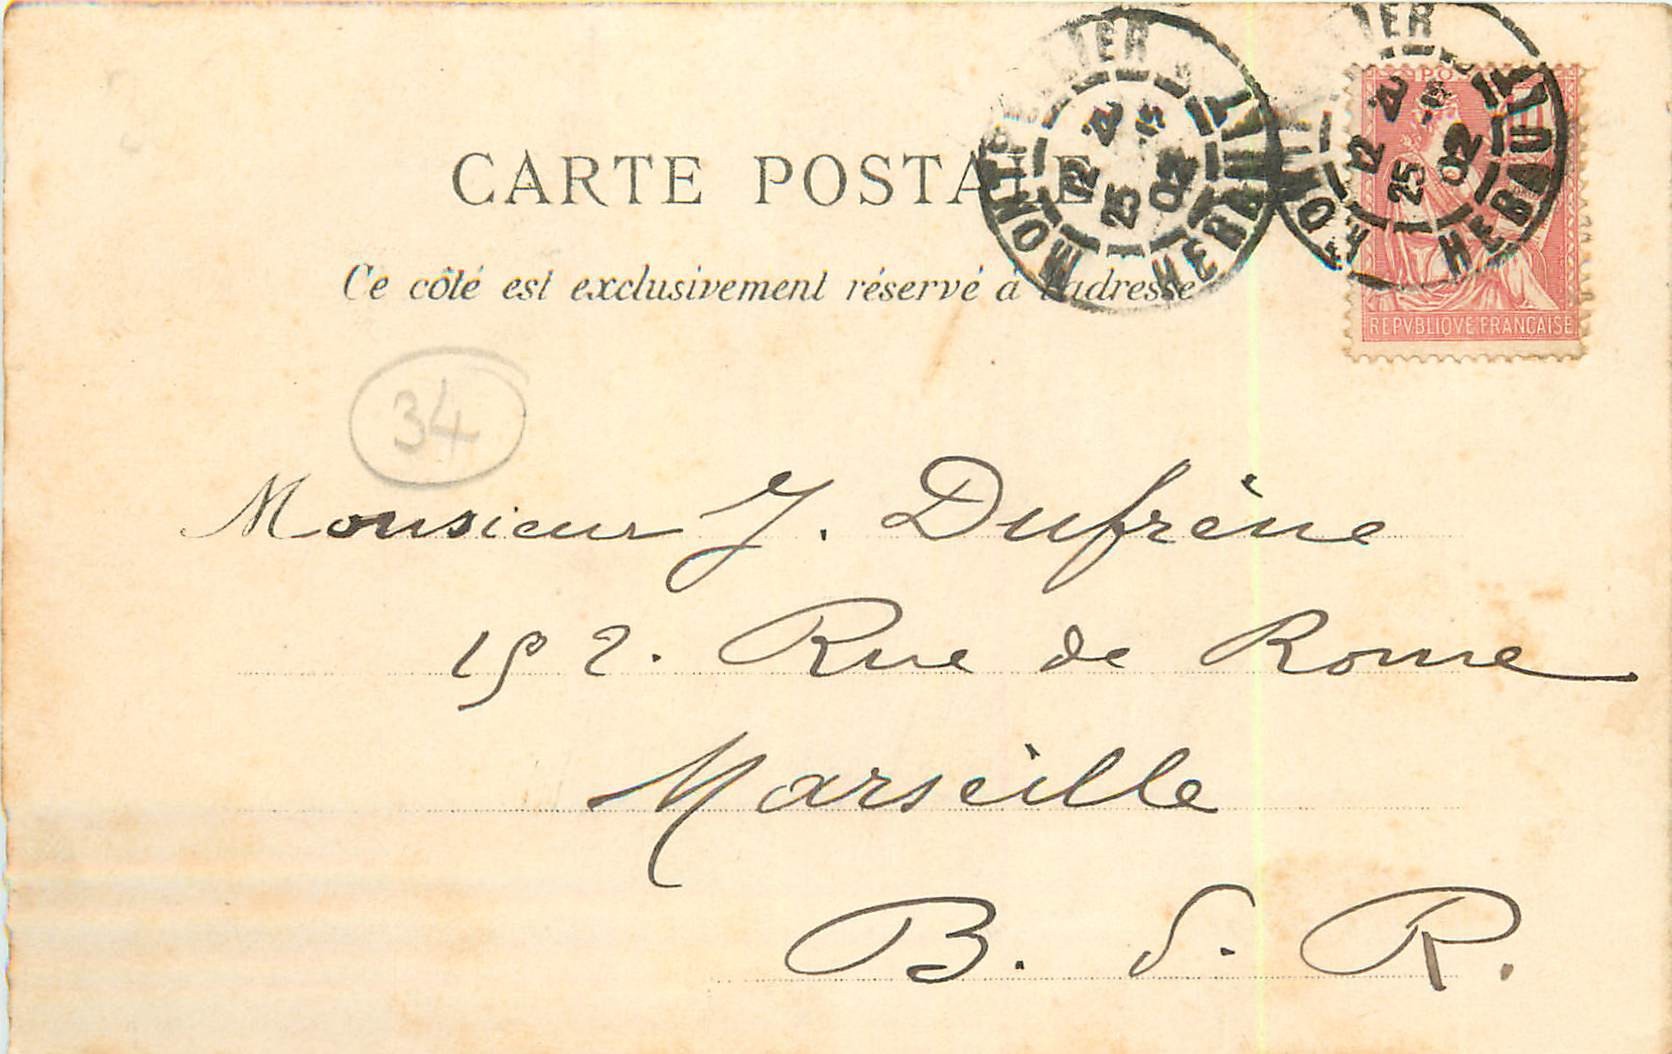 CARTE POSTALE
Ce côté est exclusivement réservé à l'adresse
MONTPELLIER
12
25
02
HERAULT
12
25
02
HERAULT
REPVBLIQVE FRANÇAISE
34
Monsieur J. Dufrène
152. Rue de Rome
Marseille
B. d. R.